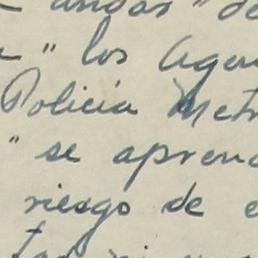 andas "de
" los Agen
Policia Metr
" se apren
riesgo de e